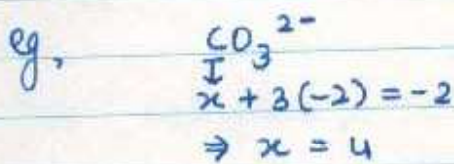 eg, CO₃²⁻
I
x + 3(-2) = -2
⇒ x = 4